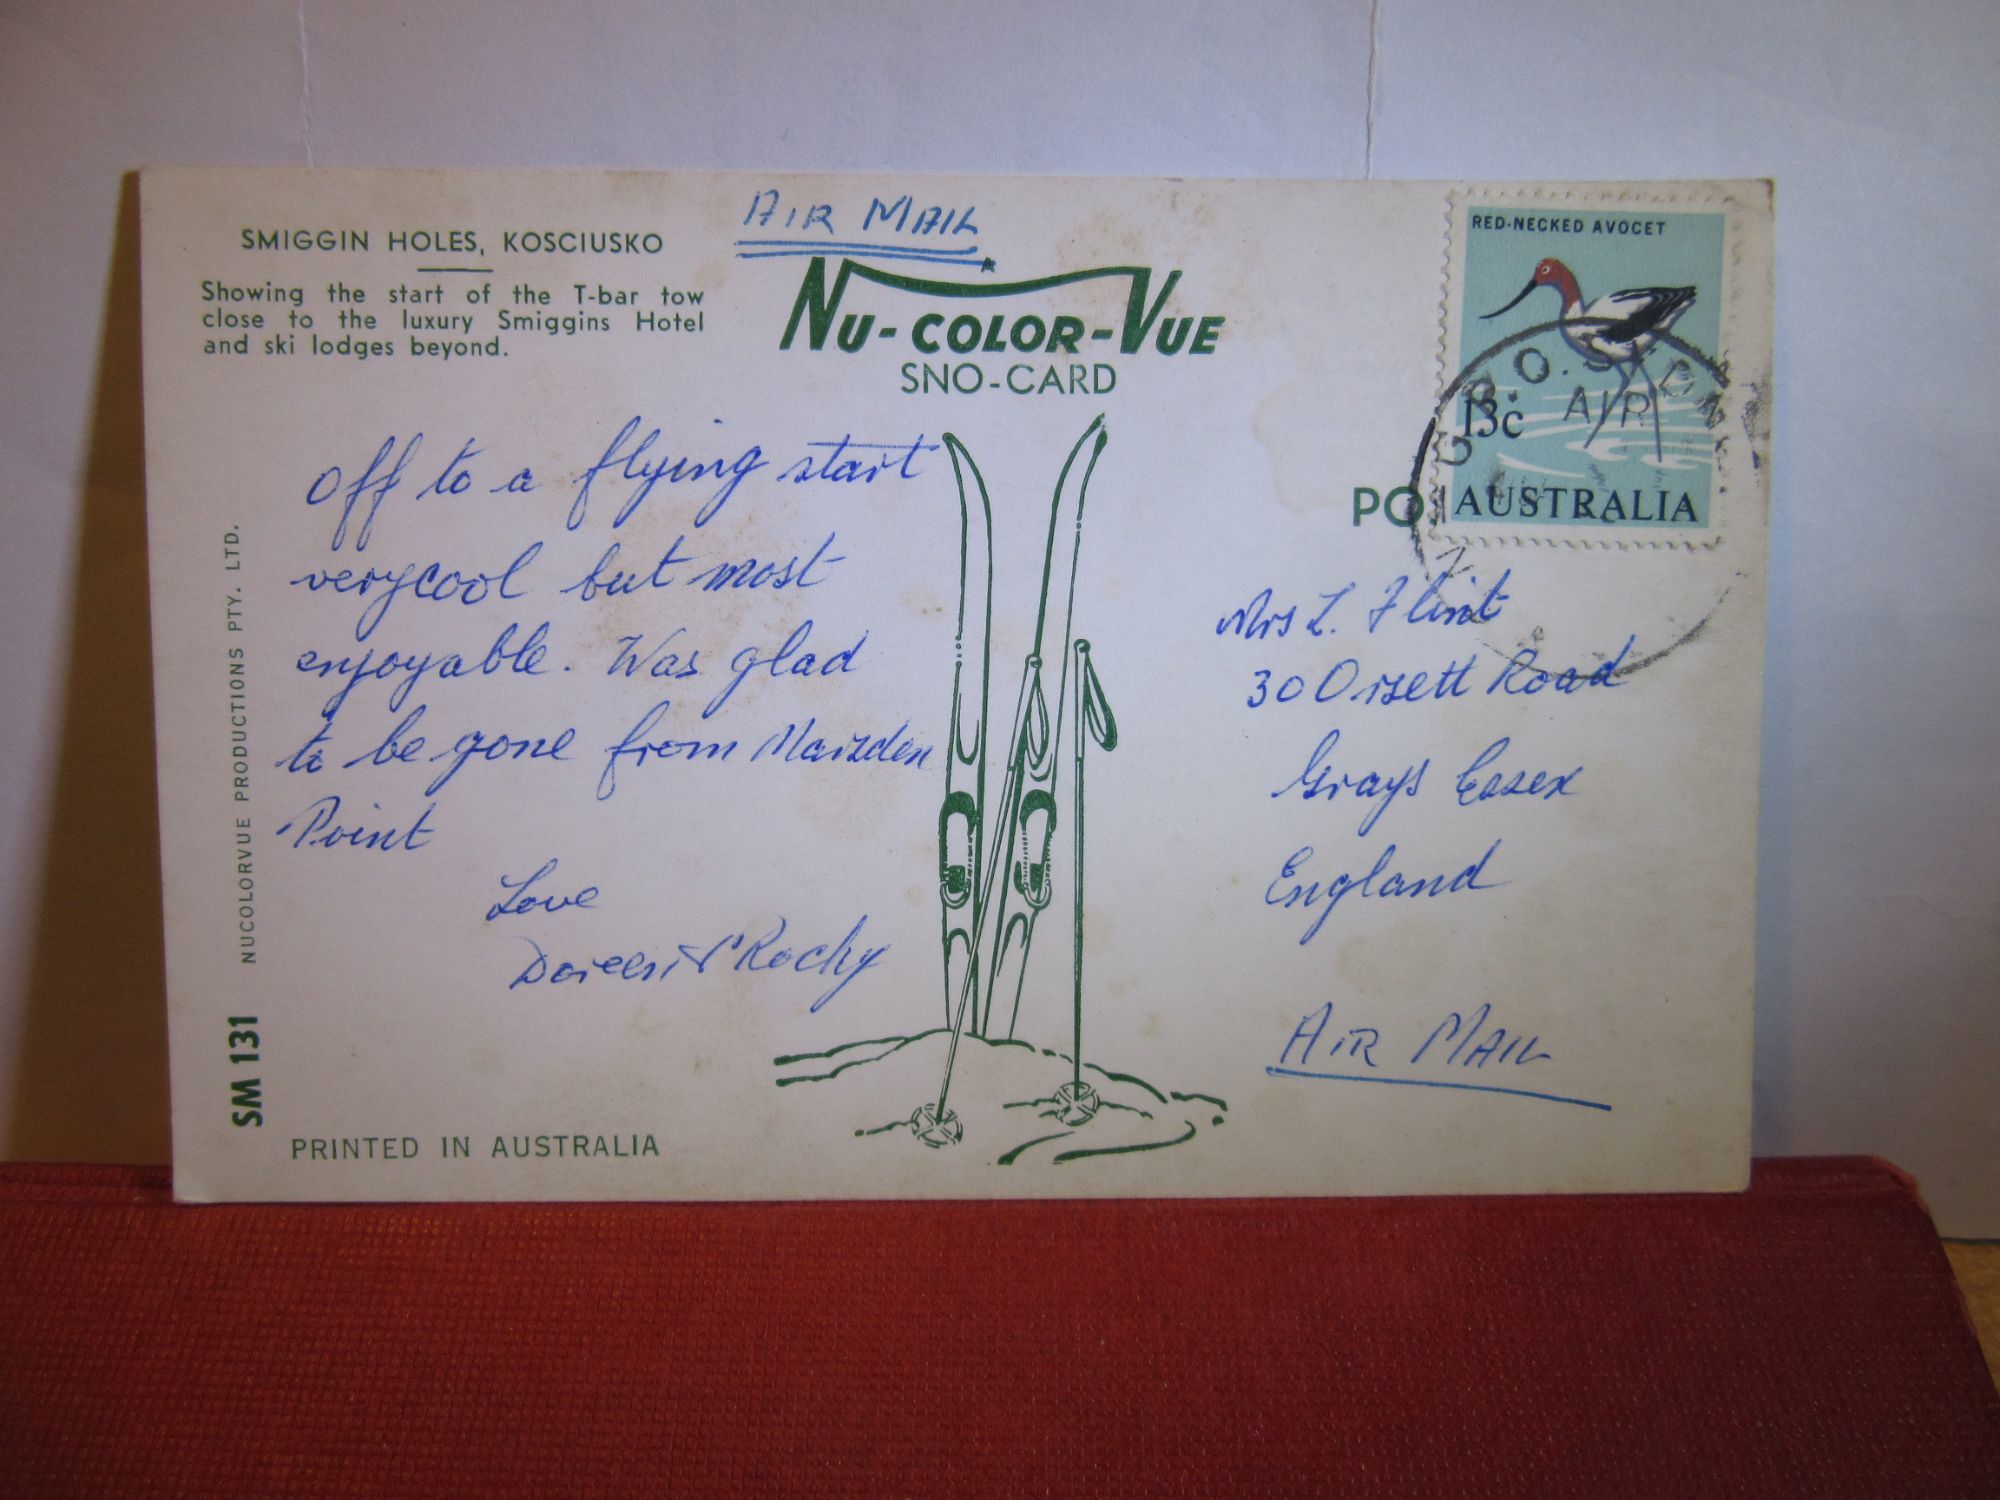 SMIGGIN HOLES, KOSCIUSKO
Showing the start of the T-bar tow
close to the luxury Smiggins Hotel
and ski lodges beyond.
AIR MAIL
NU-COLOR-VUE
SNO-CARD
Off to a flying start
verycool but most
enjoyable. Was glad
to be gone from Marsden
Point
Love
Doreen & Rocky
NUCOLORVUE PRODUCTIONS PTY. LTD.
SM 131
PRINTED IN AUSTRALIA
RED-NECKED AVOCET
13c
AUSTRALIA
G.P.O. SYDN
AIR
PO
Mrs L. Flint
30 Orsett Road
Grays Essex
England
AIR MAIL